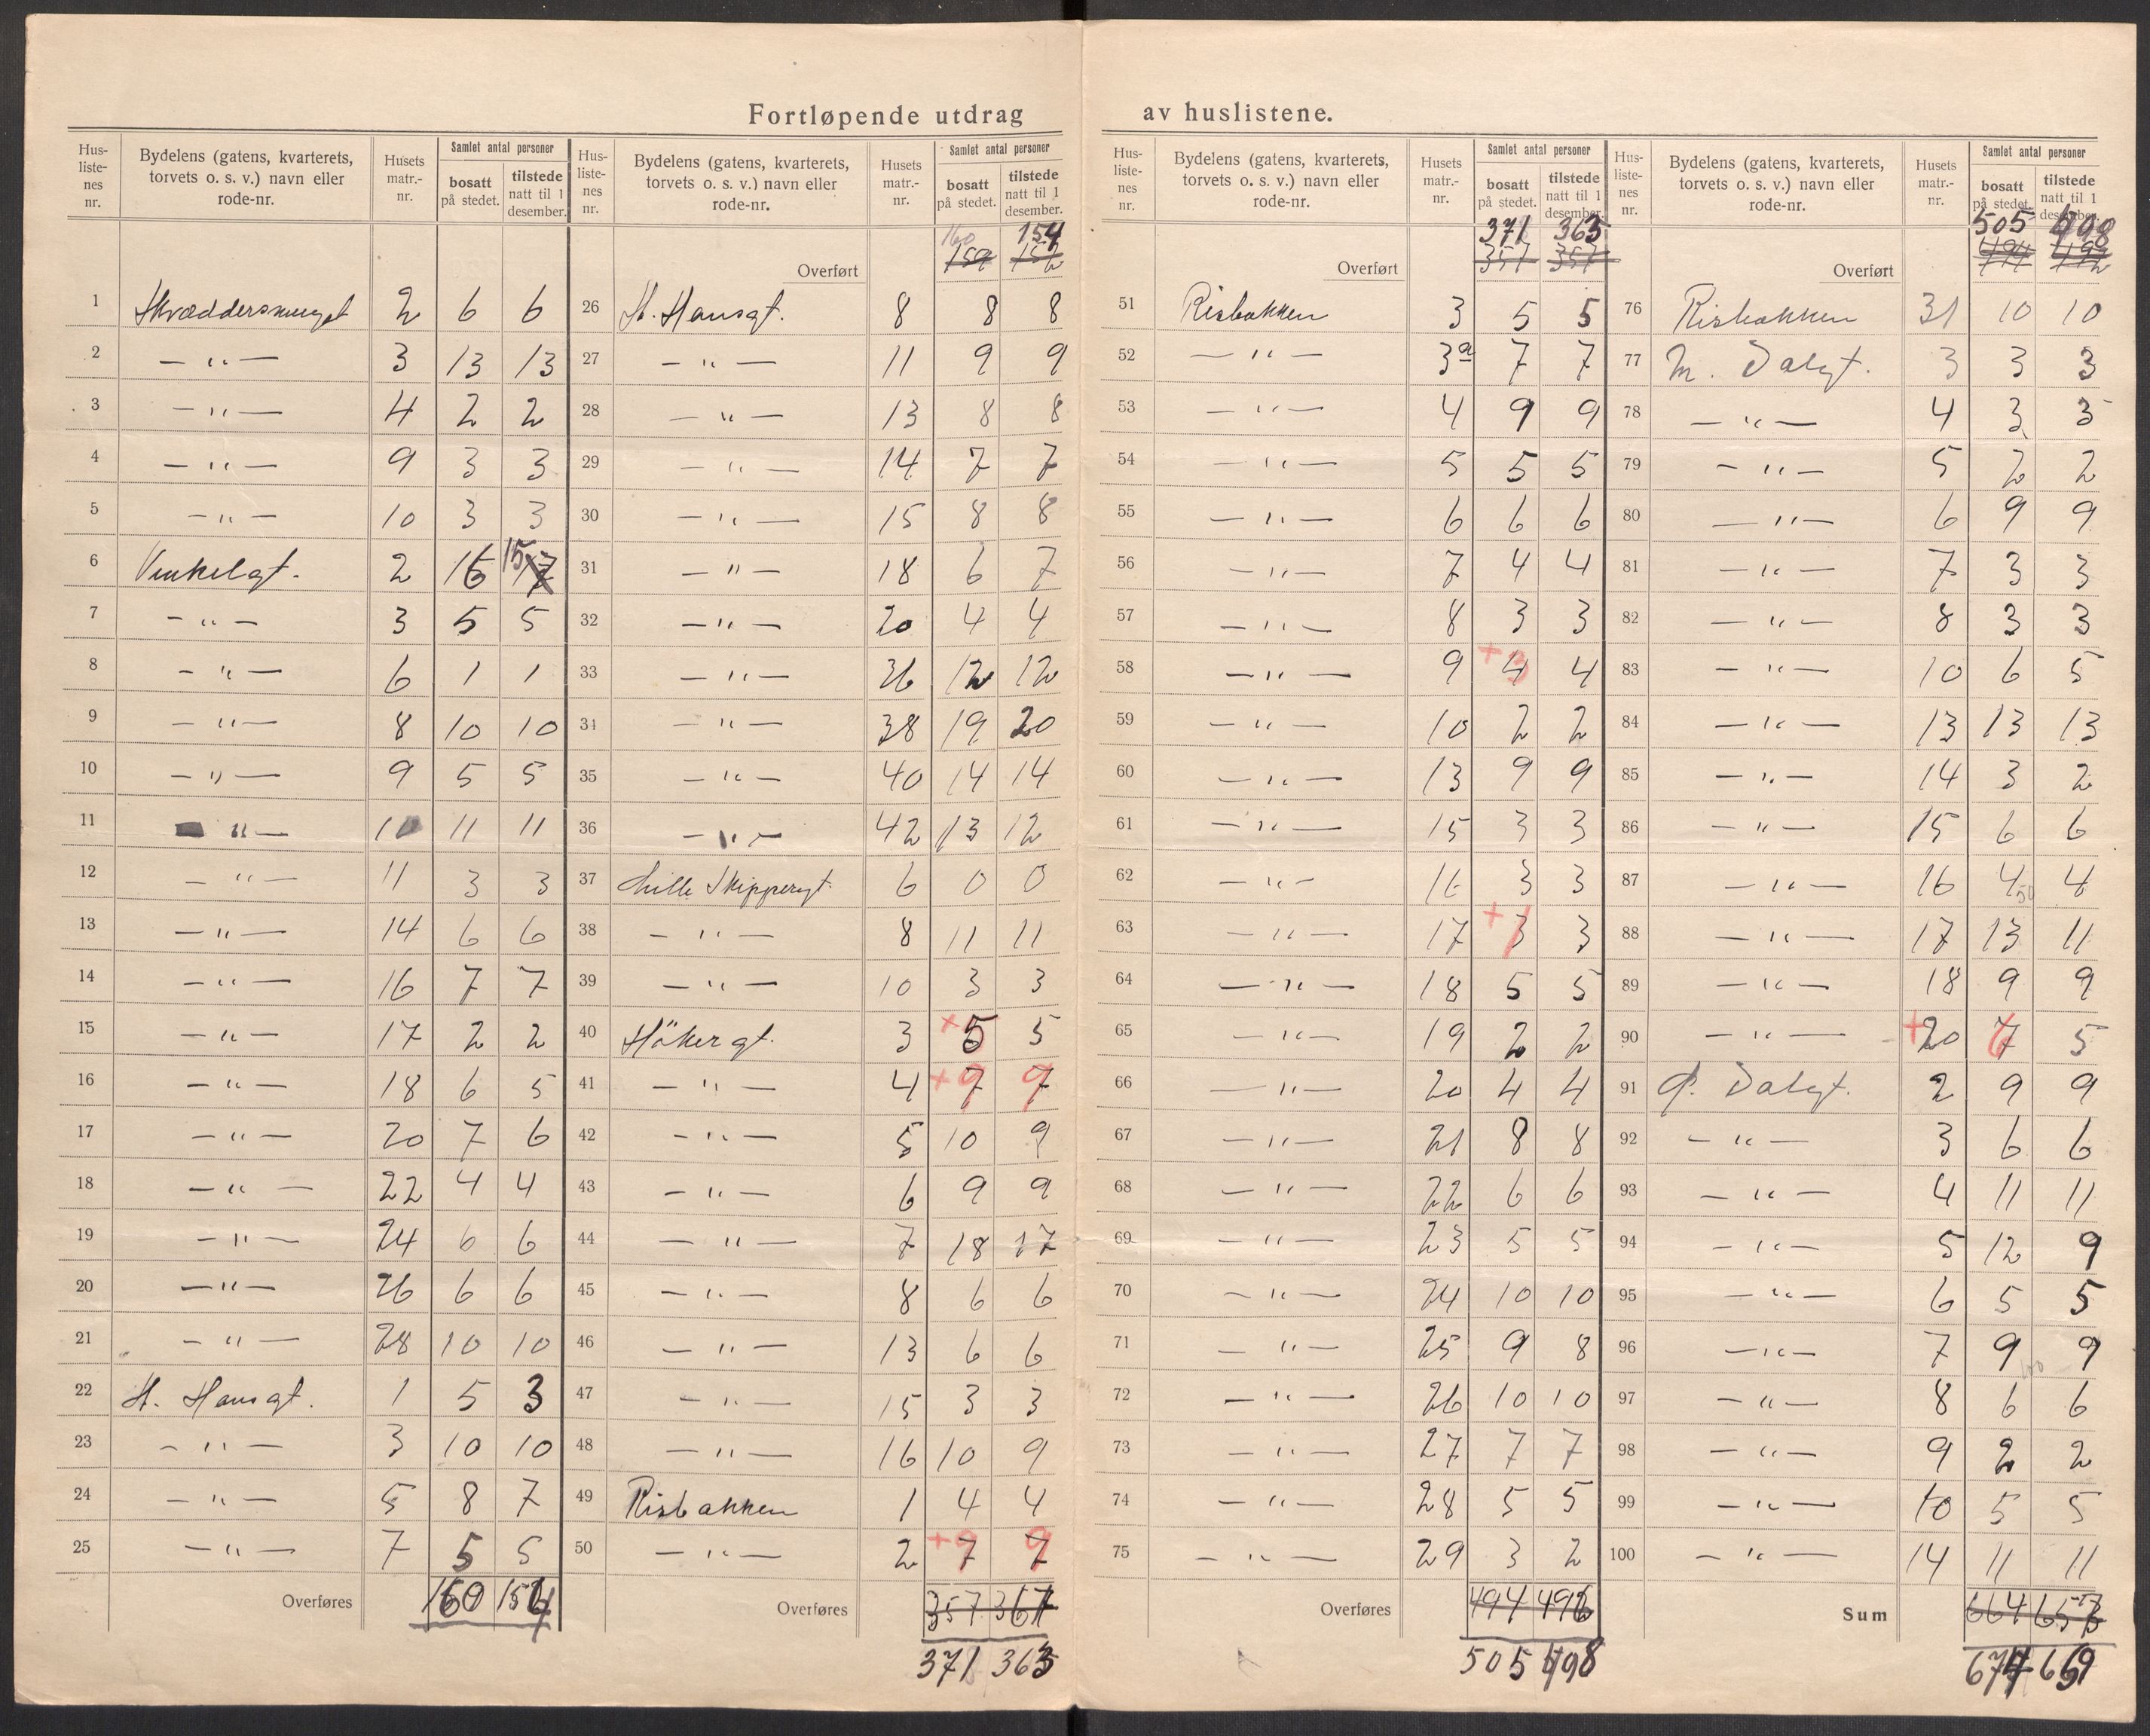 Fortløpende utdrag av huslistene.
Hus-liste-nes nr. | Bydelens (gatens, kvarterets, torvets o. s. v.) navn eller rode-nr. | Husets matr.-nr. | Samlet antal personer bosatt på stedet. | tilstede natt til 1 desember.
1 Skræddersmuget 2 6 6
2 — " — 3 13 13
3 — " — 4 2 2
4 — " — 9 3 3
5 — " — 10 3 3
6 Vinkelgt. 2 16 15
7 — " — 3 5 5
8 — " — 6 1 1
9 — " — 8 10 10
10 — " — 9 5 5
11 " — 10 11 11
12 — " — 11 3 3
13 — " — 14 6 6
14 — " — 16 7 7
15 — " — 17 2 2
16 — " — 18 6 5
17 — " — 20 7 6
18 — " — 22 4 4
19 — " — 24 6 6
20 — " — 26 6 6
21 — " — 28 10 10
22 St. Hansgt. 1 5 3
23 — " — 3 10 10
24 — " — 5 8 7
25 — " — 7 5 5
Overføres 160 154
Hus-liste-nes nr. | Bydelens (gatens, kvarterets, torvets o. s. v.) navn eller rode-nr. | Husets matr.-nr. | Samlet antal personer bosatt på stedet. | tilstede natt til 1 desember.
160 154
Overført 159 152
26 St. Hansgt. 8 8 8
27 — " — 11 9 9
28 — " — 13 8 8
29 — " — 14 7 7
30 — " — 15 8 8
31 — " — 18 6 7
32 — " — 20 4 4
33 — " — 36 12 12
34 — " — 38 19 20
35 — " — 40 14 14
36 — " — 42 13 12
37 Lille Skippergt. 6 0 0
38 — " — 8 11 11
39 — " — 10 3 3
40 Hökergt. 3 + 5 5
41 — " — 4 + 9 9
42 — " — 5 10 9
43 — " — 6 9 9
44 — " — 7 18 17
45 — " — 8 6 6
46 — " — 13 6 6
47 — " — 15 3 3
48 — " — 16 10 9
49 Risbakken 1 4 4
50 — " — 2 + 9 9
Overføres 357 361
371 363
Hus-liste-nes nr. | Bydelens (gatens, kvarterets, torvets o. s. v.) navn eller rode-nr. | Husets matr.-nr. | Samlet antal personer bosatt på stedet. | tilstede natt til 1 desember.
371 363
Overført 357 351
51 Risbakken 3 5 5
52 — " — 3a 7 7
53 — " — 4 9 9
54 — " — 5 5 5
55 — " — 6 6 6
56 — " — 7 4 4
57 — " — 8 3 3
58 — " — 9 + 4 4
59 — " — 10 2 2
60 — " — 13 9 9
61 — " — 15 3 3
62 — " — 16 3 3
63 — " — 17 + 3 3
64 — " — 18 5 5
65 — " — 19 2 2
66 — " — 20 4 4
67 — " — 21 8 8
68 — " — 22 6 6
69 — " — 23 5 5
70 — " — 24 10 10
71 — " — 25 9 8
72 — " — 26 10 10
73 — " — 27 7 7
74 — " — 28 5 5
75 — " — 29 3 2
Overføres 494 496
505 498
Hus-liste-nes nr. | Bydelens (gatens, kvarterets, torvets o. s. v.) navn eller rode-nr. | Husets matr.-nr. | Samlet antal personer bosatt på stedet. | tilstede natt til 1 desember.
505 498
Overført 494 492
76 Risbakken 31 10 10
77 M. Dalgt. 3 3 3
78 — " — 4 3 3
79 — " — 5 2 2
80 — " — 6 9 9
81 — " — 7 3 3
82 — " — 8 3 3
83 — " — 10 6 5
84 — " — 13 13 13
85 — " — 14 3 2
86 — " — 15 6 6
87 — " — 16 4 4
88 — " — 17 13 11
89 — " — 18 9 9
90 — " — + 20 7 5
91 Ø. Dalgt. 2 9 9
92 — " — 3 6 6
93 — " — 4 11 11
94 — " — 5 12 9
95 — " — 6 5 5
96 — " — 7 9 9
97 — " — 8 6 6
98 — " — 9 2 2
99 — " — 10 5 5
100 — " — 14 11 11
Sum 664 653
674 659